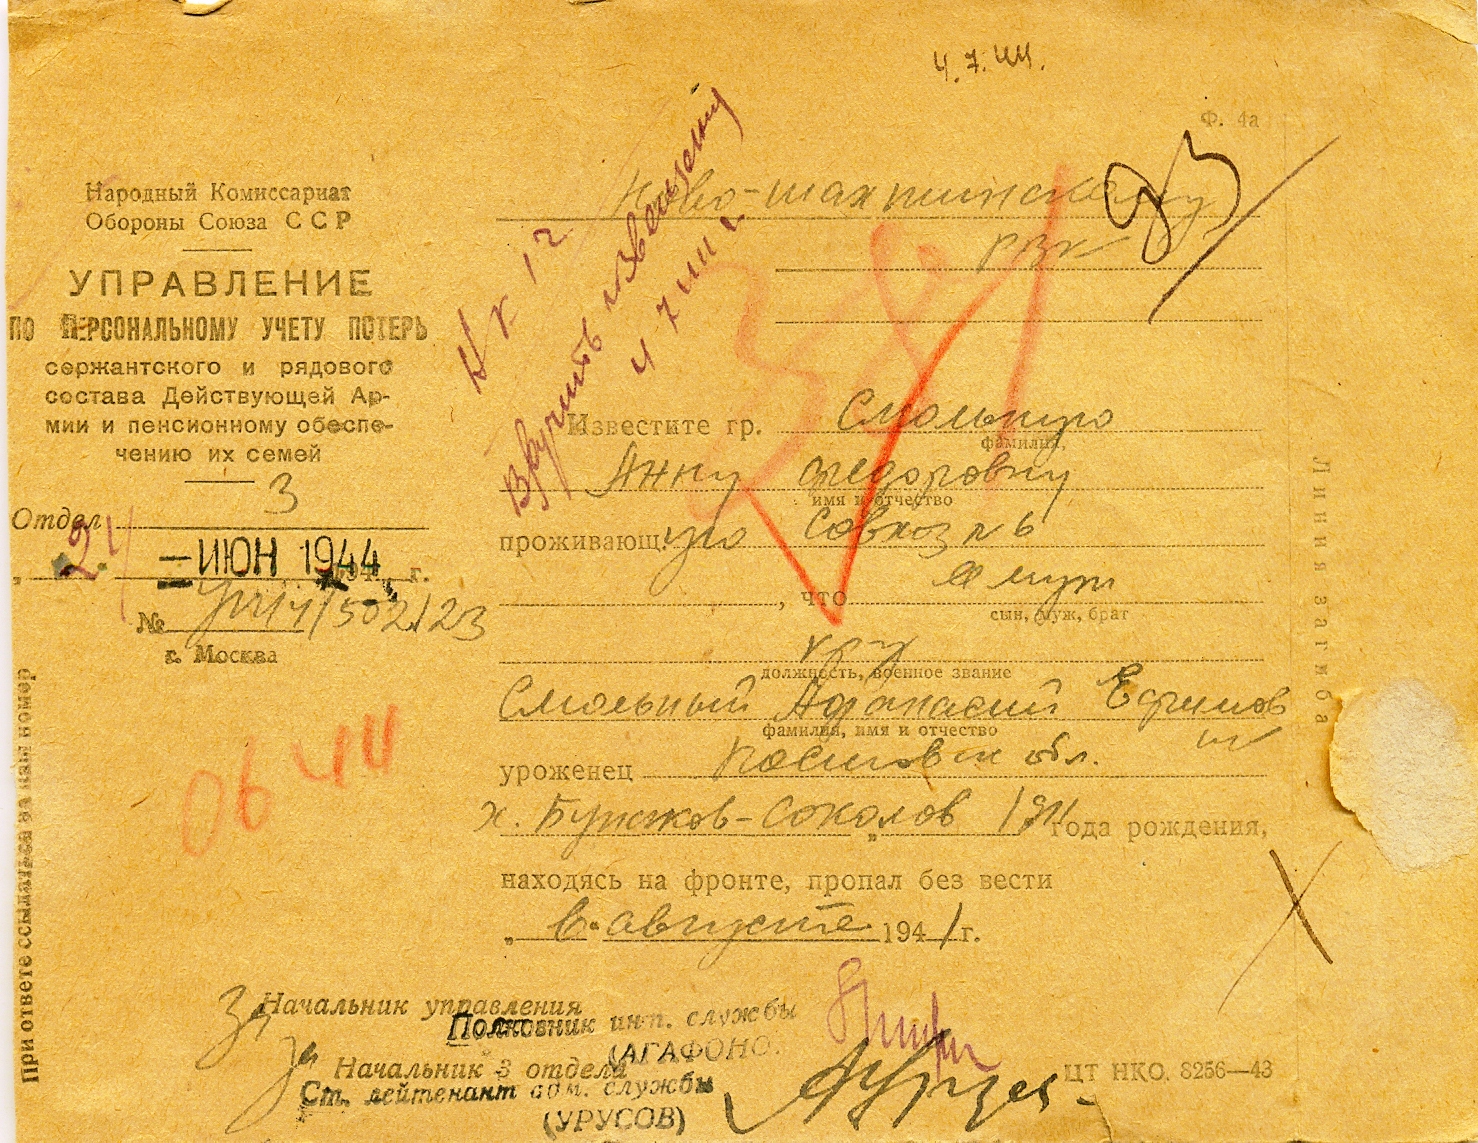 4.7.44.
Ф. 4а
Народный Комиссариат
Обороны Союза ССР
УПРАВЛЕНИЕ
ПО ПЕРСОНАЛЬНОМУ УЧЕТУ ПОТЕРЬ
сержантского и рядового
состава Действующей Ар-
мии и пенсионному обеспе-
чению их семей
Отдел 3
24 — ИЮН 1944 194 г.
№ /502/23
г. Москва
06 44
При ответе ссылаться на наш номер
Ново-шахтинскому
рвк
Вручить извещение
Известите гр. Смольную
фамилия,
Анну Федоровну
имя и отчество
проживающ.ую Совхоз № 6
, что муж
сын, муж, брат
должность, военное звание
Смольный Афанасий Ефимов
ич
фамилия, имя и отчество
уроженец обл.
х. Соколов 1911 года рождения,
находясь на фронте, пропал без вести
„ в “ августе 1941 г.
За Начальник управления
Полковник инт. службы
(АГАФОНО
За Начальник 3 отдела
Ст. лейтенант адм. службы
(УРУСОВ)
ЦТ НКО. 8256—43
Линия загиба